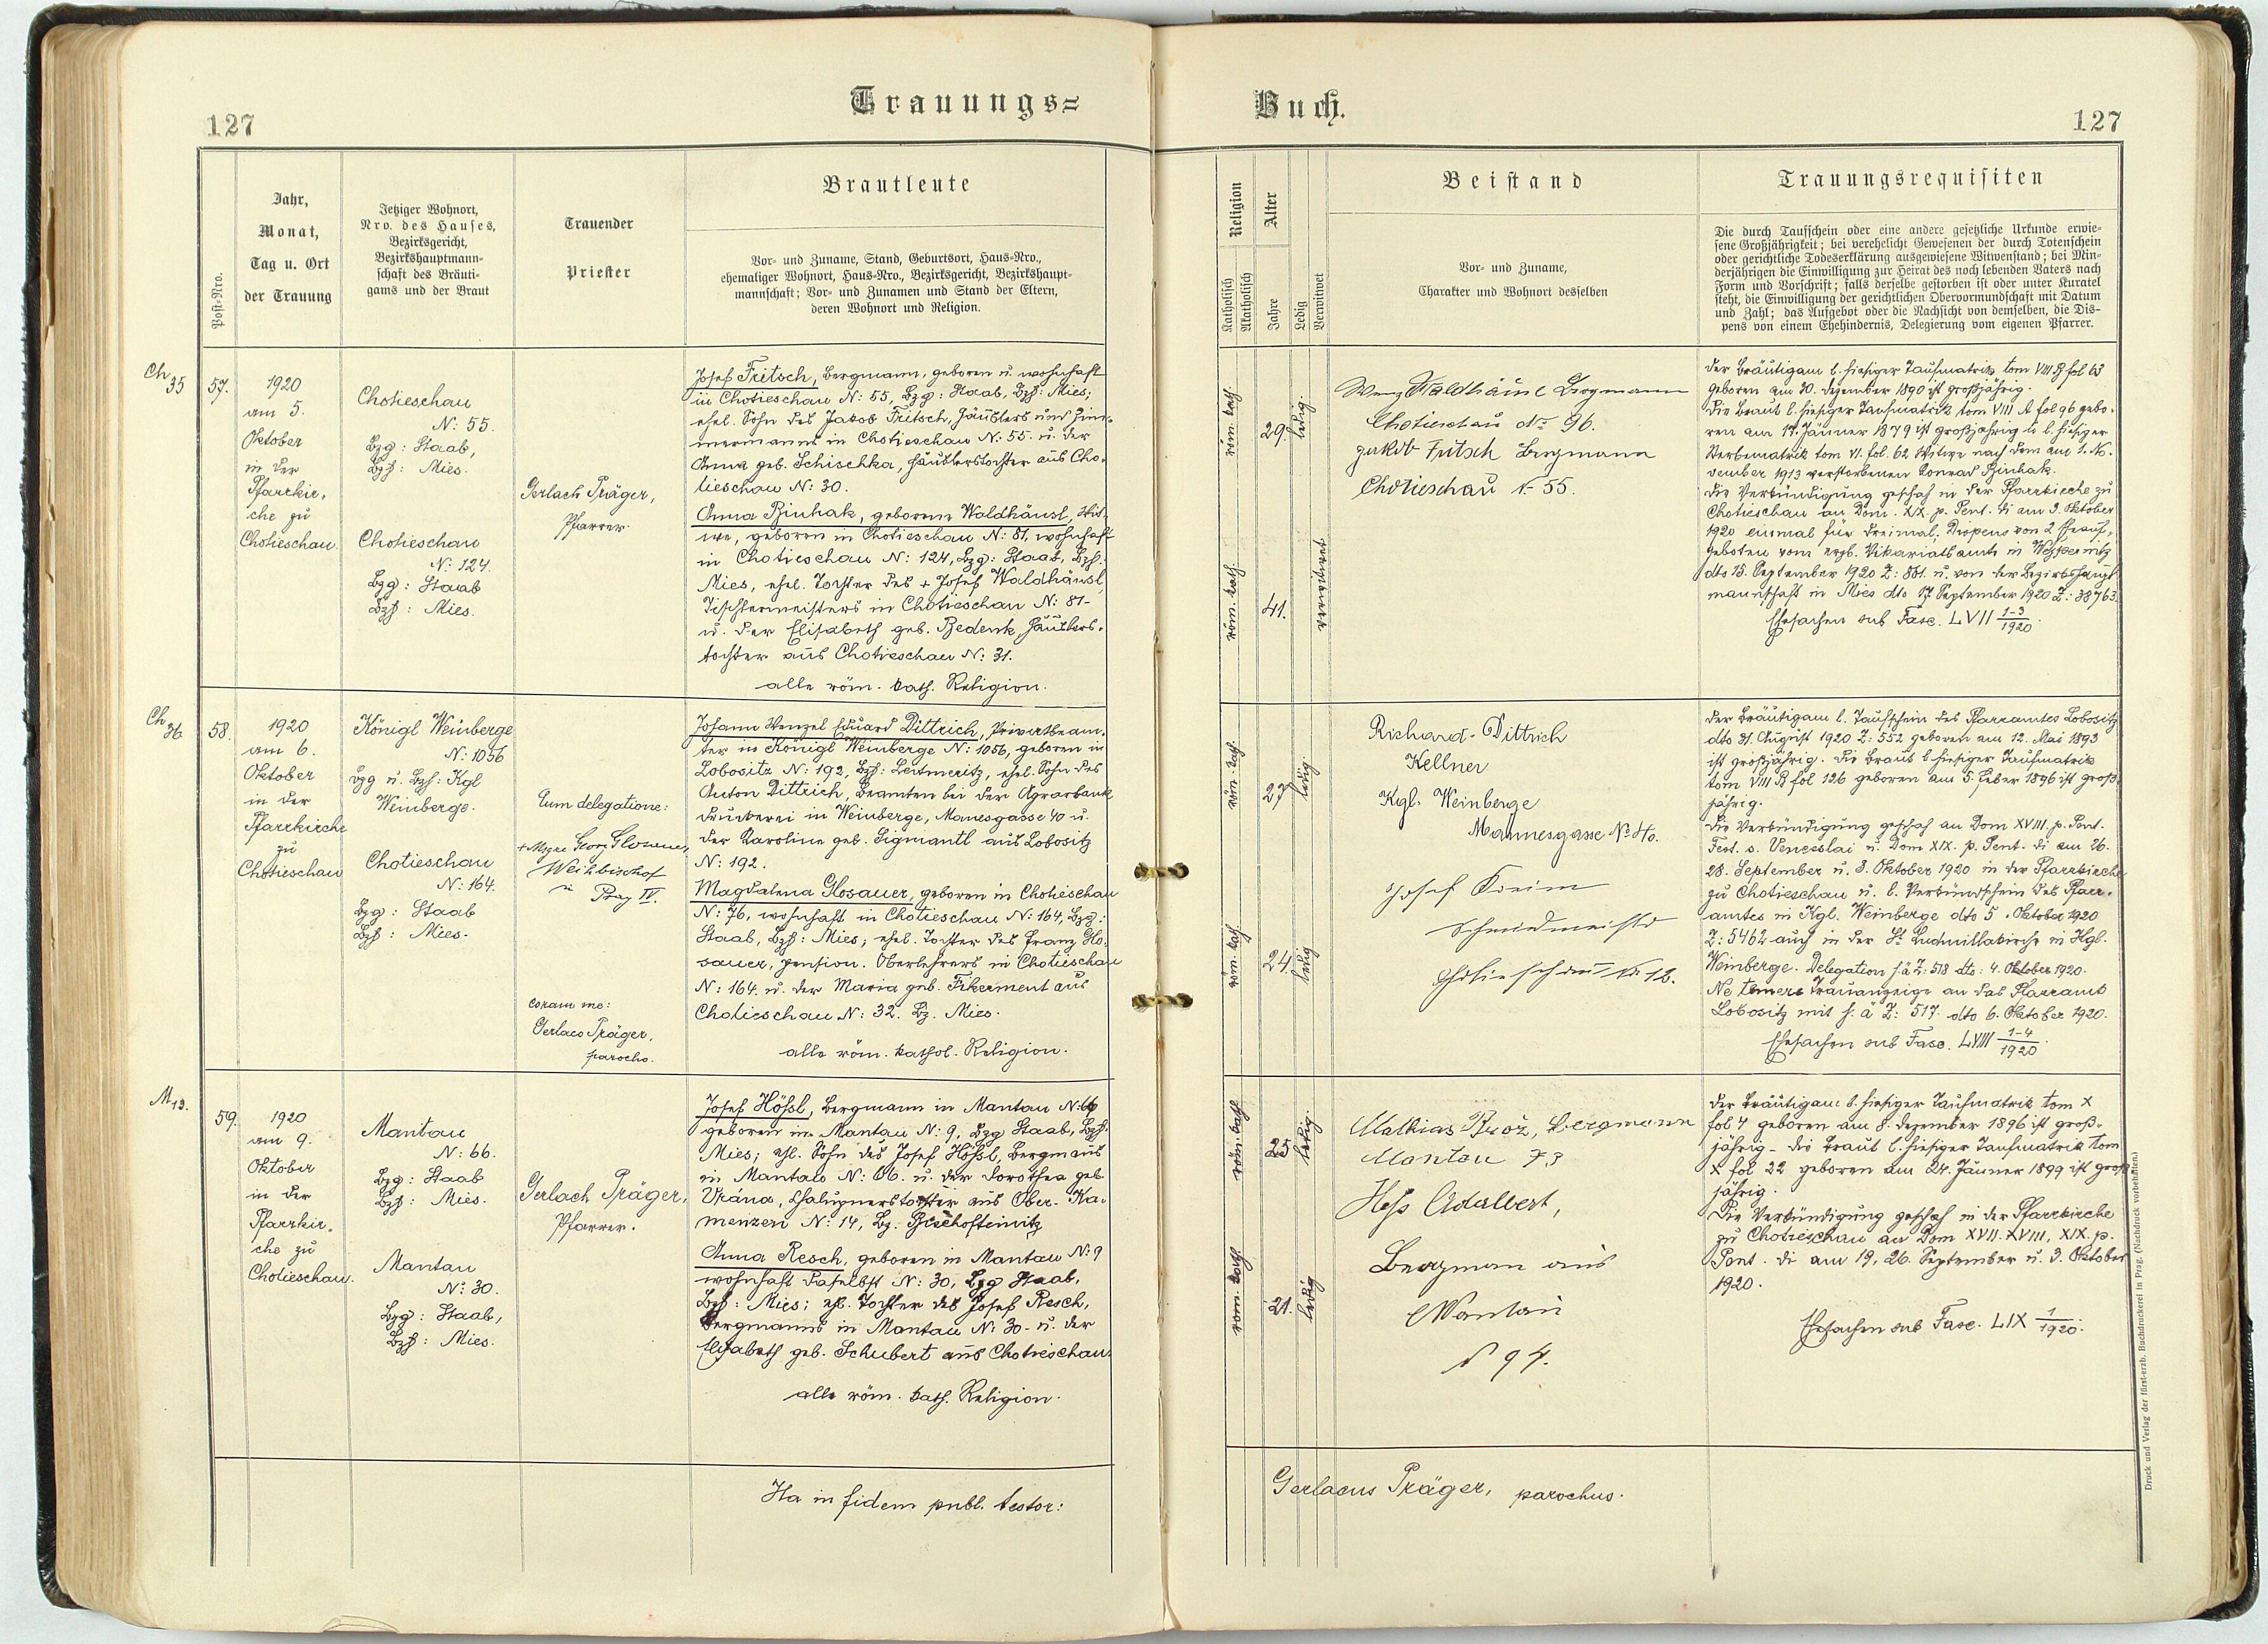 Trauungs=
Buch.
127
127
Post-Nro.
Jahr,
Monat,
Tag u. Ort
der Trauung
Jetziger Wohnort,
Nro. des Hauses,
Bezirksgericht,
Bezirkshauptmann-
schaft des Bräuti-
gams und der Braut
Trauender
Priester
Brautleute
Vor- und Zuname, Stand, Geburtsort, Haus-Nro.,
ehemaliger Wohnort, Haus-Nro., Bezirksgericht, Bezirkshaupt-
mannschaft; Vor- und Zunamen und Stand der Eltern,
deren Wohnort und Religion.
Religion
Katholisch
Akatholisch
Alter
Jahre
Ledig
Verwitwet
Beistand
Vor- und Zuname,
Charakter und Wohnort desselben
Trauungsrequisiten
Die durch Taufschein oder eine andere gesetzliche Urkunde erwie-
sene Großjährigkeit; bei verehelicht Gewesenen der durch Totenschein
oder gerichtliche Todeserklärung ausgewiesene Witwenstand; bei Min-
derjährigen die Einwilligung zur Heirat des noch lebenden Vaters nach
Form und Vorschrift; falls derselbe gestorben ist oder unter Kuratel
steht, die Einwilligung der gerichtlichen Obervormundschaft mit Datum
und Zahl; das Aufgebot oder die Nachsicht von demselben, die Dis-
pens von einem Ehehindernis, Delegierung vom eigenen Pfarrer.
Ch 35
57.
1920
am 5.
Oktober
in der
Pfarrkir-
che zu
Chotieschau.
Chotieschau
N: 55.
Bzg: Staab,
Bzh: Mies.
Chotieschau
N: 124.
Bzg: Staab
Bzh: Mies.
Gerlach Präger,
Pfarrer.
Josef Fritsch, Bergmann, geboren u. wohnhaft
in Chotieschau N: 55, Bzg: Staab, Bzh: Mies;
ehel. Sohn des Jakob Fritsch, Häuslers und Zim-
mermanns in Chotieschau N: 55. u. der
Anna geb. Schischka, Häuslerstochter aus Cho-
tieschau N: 30.
Anna Binhak, geborene Waldhäusl, Wit-
we, geboren in Chotieschau N: 81, wohnhaft
in Chotieschau N: 124, Bzg: Staab, Bzh:
Mies, ehel. Tochter des + Josef Waldhäusl,
Tischlermeisters in Chotieschau N: 81-
u. der Elisabeth geb. Bedenk, Häuslers-
tochter aus Chotieschau N: 31.
alle röm. kath. Religion.
röm. kath.
29.
ledig.
röm. kath.
41.
verwitwet
Wenz Waldhäusl Bergmann
Chotieschau No 96.
Jakob Fritsch Bergmann
Chotieschau N 55.
Der Bräutigam l. hiesiger Taufmatrik tom VIII B fol 63
geboren am 20. Dezember 1890 ist großjährig.
Die Braut l. hiesiger Taufmatrik tom VIII A fol 96 gebo-
ren am 17. Jänner 1879 ist großjährig u. l. hiesiger
Sterbematrik tom VI. fol. 62 Witwe nach dem am 1. No-
vember 1913 verstorbenen Konrad Binhak.
Die Verkündigung geschah in der Pfarrkirche zu
Chotieschau an Dom. XIX. p. Pent. di am 3. Oktober
1920 einmal für dreimal; Dispens von 2 Auf-
geboten vom erzb. Vikariatsamte in
dto 15. September 1920 Z: 881. u. von der Bezirkshaupt-
mannschaft in Mies dto 17. September 1920 Z: 38763.
Ehesachen sub Fasc. LVII 1-3/1920.
Ch 36
58.
1920
am 6.
Oktober
in der
Pfarrkirche
zu
Chotieschau
Königl Weinberge
N: 1056
Bzg u. Bzh: Kgl
Weinberge.
Chotieschau
N: 164.
Bzg: Staab
Bzh: Mies.
Cum delegatione:
+ Msgre Georg Glosauer,
Weihbischof
in Prag IV.
coram me:
Gerlaco Präger,
parocho.
Johann Wenzel Eduard Dittrich, Privatbeam-
ter in Königl Weinberge N: 1056, geboren in
Lobositz N: 192, Bzh: Leitmeritz, ehel. Sohn des
Anton Dittrich, Beamten bei der Agrarbank
Druckerei in Weinberge, Manesgasse 40 u.
der Karoline geb. Sigmantl aus Lobositz
N: 192.
Magdalena Glosauer, geboren in Chotieschau
N: 76, wohnhaft in Chotieschau N: 164, Bzg:
Staab, Bzh: Mies; ehel. Tochter des Franz Glo-
sauer, pension. Oberlehrers in Chotieschau
N: 164. u. der Maria geb. Fikerment aus
Chotieschau N: 32. Bz. Mies.
alle röm. kathol. Religion.
röm. kath.
27
ledig
röm. kath.
24.
ledig
Richard Dittrich
Kellner
Kgl. Weinberge
Mannesgasse No 40.
Josef Kreim
Schmiedmeister
Chotieschau No 12.
Der Bräutigam l. Taufschein des Pfarramtes Lobositz
dto 31. August 1920 Z: 552 geboren am 12. Mai 1893
ist großjährig. Die Braut l. hiesiger Taufmatrik
tom VIII B fol 126 geboren am 5. Feber 1896 ist groß-
jährig.
Die Verkündigung geschah an Dom XVIII. p. Pent.
Fest. s. Venceslai u. Dom XIX. p. Pent. di am 26.
28. September u. 3. Oktober 1920 in der Pfarrkirche
zu Chotieschau u. l. Verkündschein des Pfarr-
amtes in Kgl. Weinberge dto 5. Oktober 1920
Z: 5462 auch in der St Ludmillakirche in Kgl.
Weinberge. Delegation h. ä Z: 518 dto: 4. Oktober 1920.
Ne temere Trauanzeige an das Pfarramt
Lobositz mit h. ä Z: 517. dto 6. Oktober 1920.
Ehesachen sub Fasc. LVIII 1-4/1920.
M 13.
59.
1920
am 9.
Oktober
in der
Pfarrkir-
che zu
Chotieschau.
Mantau
N: 66.
Bzg: Staab
Bzh: Mies.
Mantau
N: 30.
Bzg: Staab,
Bzh: Mies.
Gerlach Präger,
Pfarrer.
Josef Hößl, Bergmann in Mantau N: 66
geboren in Mantau N: 9, Bzg Staab, Bzh.
Mies; ehl. Sohn des Josef Hößl, Bergmanns
in Mantau N: 66. u. der Dorothea geb.
Vrána, Chalupnerstochter aus Ober-Ka-
menzen N: 14, Bz. Bischofteinitz
Anna Resch, geboren in Mantau N: 9
wohnhaft daselbst N: 30, Bzg Staab,
Bzh: Mies; ehl. Tochter des Josef Resch,
Bergmanns in Mantau N: 30- u. der
Elisabeth geb. Schubert aus Chotieschau.
alle röm. kath. Religion.
röm. kath.
23
ledig.
röm. kath.
21.
ledig
Mathias Broz, Bergmann
Mantau 73
Heß Adalbert,
Bergman aus
Mantau
N 94.
Der Bräutigam l. hiesiger Taufmatrik tom X
fol 4 geboren am 8. Dezember 1896 ist groß-
jährig - die Braut l. hiesiger Taufmatrik tom
X fol 22 geboren am 24. Jänner 1899 ist groß-
jährig.
Die Verkündigung geschah in der Pfarrkirche
zu Chotieschau an Dom XVII. XVIII, XIX. p.
Pent. di am 19, 26. September u. 3. Oktober
1920.
Ehesachen sub Fasc. LIX 1/1920.
Ita in fidem publ. testor:
Gerlacus Präger, parochus.
Druck und Verlag der fürst-erzb. Buchdruckerei in Prag. (Nachdruck vorbehalten.)